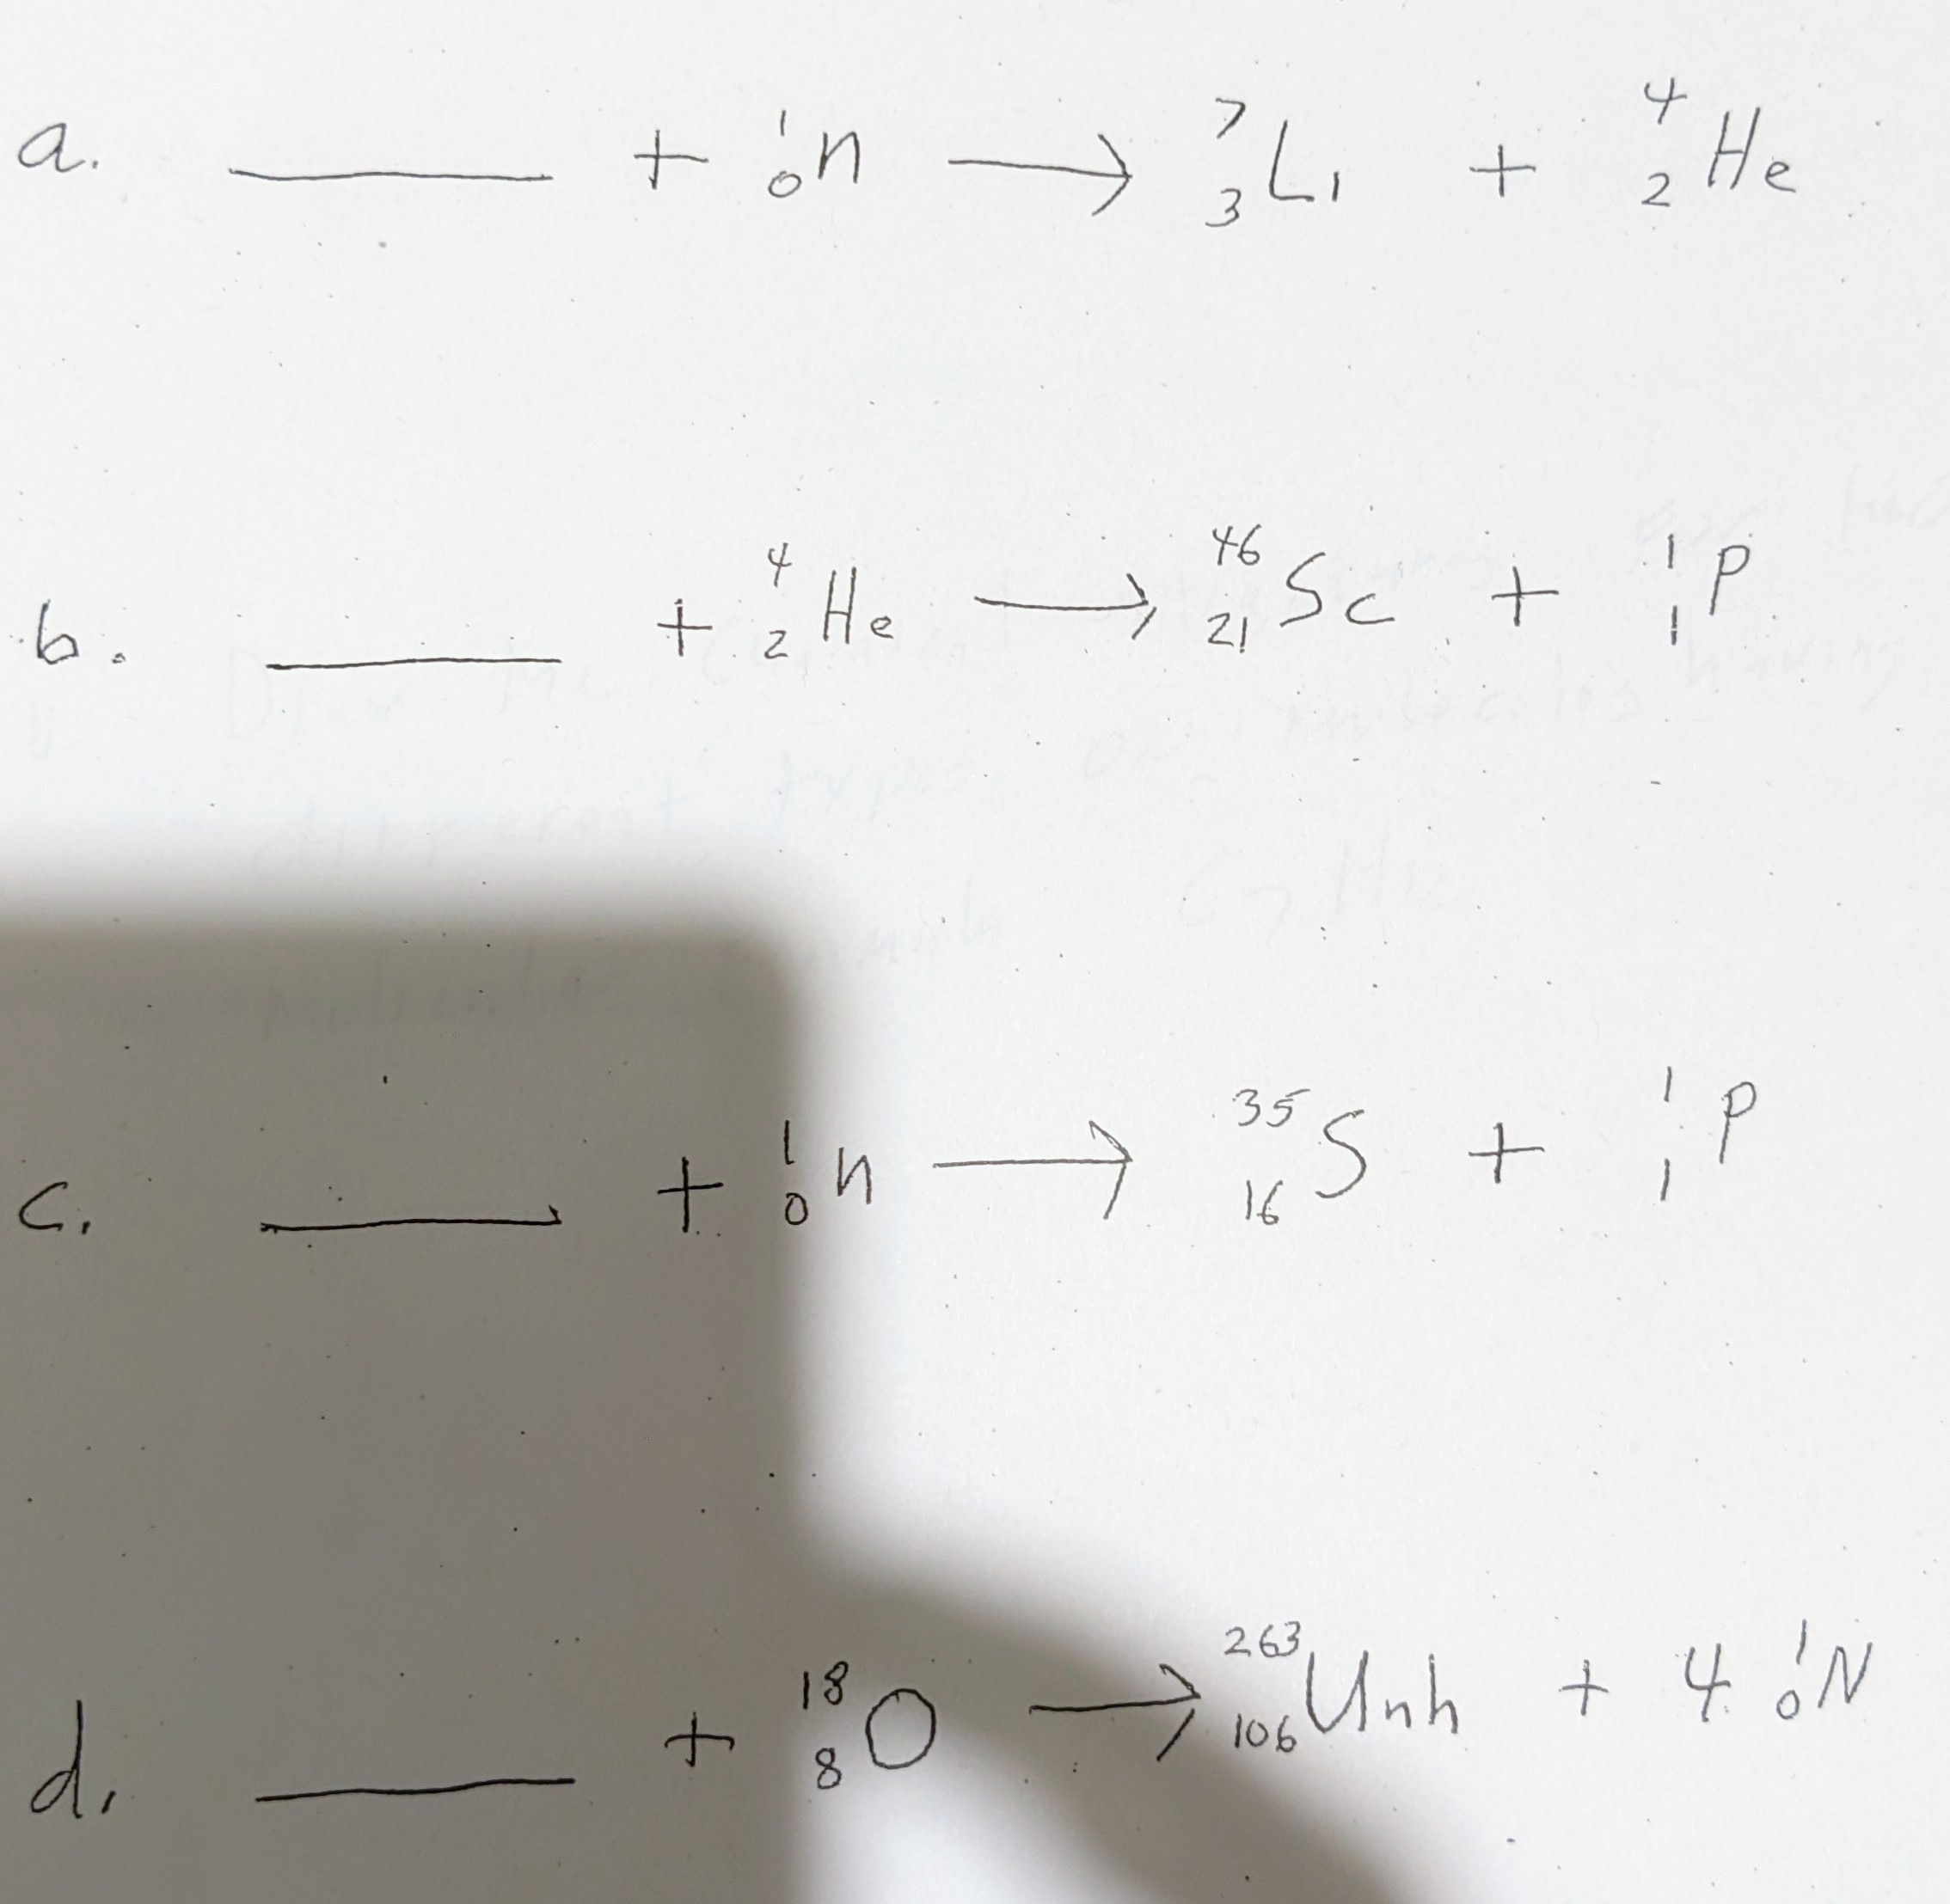 a. ______ + ¹₀n → ⁷₃Li + ⁴₂He
b. ______ + ⁴₂He → ⁴⁶₂₁Sc + ¹₁P
c. ______ + ¹₀n → ³⁵₁₆S + ¹₁P
d. ______ + ¹⁸₈O → ²⁶³₁₀₆Unh + 4 ¹₀N